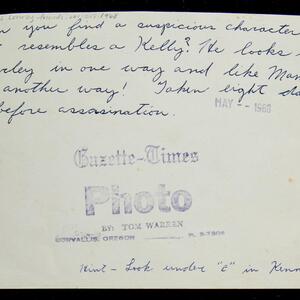 n you find a suspicious character
t resembles a Kelly? He looks
rley in one way and like Man
another way! Taken eight da
before assasination.
MAY -- 1968
Gazette-Times
Photo
BY: TOM WARREN
CORVALLIS, OREGON
Hint - Look under "E" in Kenn